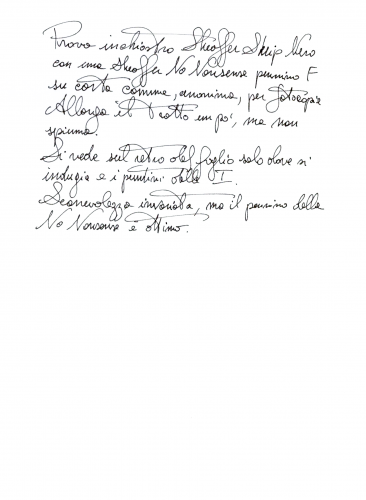 Prova inchiostro Sheaffer Skrip Nero
con una Sheaffer No Nonsense pennino F
su carta comune, anonima, per fotocopie
Allunga il tratto un po', ma non
spiuma.
Si vede sul retro del foglio solo dove si
indugia e i puntini delle I.
Scorrevolezza invariata, ma il pennino della
No Nonsense è ottimo.